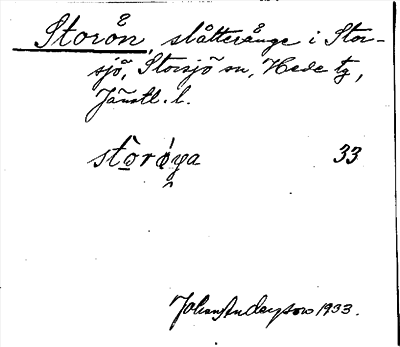 Storön, slåtteränge i Stor-
sjö, Storsjö sn, Hede tg,
Jämtl. l.
stòrǿya 33
Johan Anderson 1933.